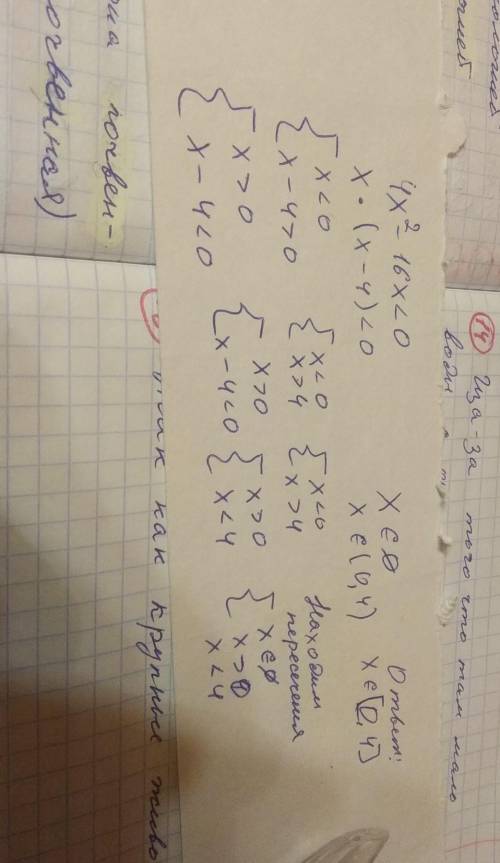 4x² - 16x < 0
x • (x - 4) < 0
{ x < 0
x - 4 > 0
{ x > 0
x - 4 < 0
{ x < 0
x > 4
{ x > 0
x - 4 < 0
{ x < 0
x > 4
{ x > 0
x < 4
x ∈ ∅
x ∈ (0,4)
Находим
пересечения
{ x ∈ ∅
x > 0
x < 4
Ответ:
x ∈ [0,4]
14 Из-за того что там мало
воды
так как крупные живо
почвен-
очвенная)